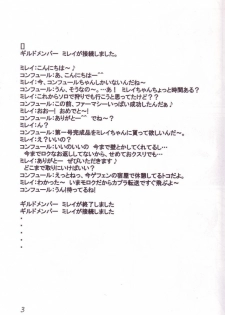 []
ギルドメンバー ミレイが接続しました。
ミレイ：こんにちは～♪
コンフュール：あ、こんにちは―^^
ミレイ：今、コンフュールちゃんしかいないんだね～
コンフュール：うん、そうなの～…あ！ ミレイちゃんちょっと時間ある？
ミレイ：これからソロで狩りでも行こうと思ってたけど？
コンフュール：この前、ファーマシーいっぱい成功したんだぁ♪
ミレイ：おお―！ おめでと―！
コンフュール：ありがと―^^ でね―？
ミレイ：ん？
コンフュール：第一号完成品をミレイちゃんに貰って欲しいんだけど
ミレイ：え？いいの？
コンフュール：いいのいいの 今まで壁とかしてくれてるし…
今までロクなお返ししてないから、せめておクスリでも…
ミレイ：ありがと― ぜひいただきます♪
どこまで取りにいけばいい？
コンフュール：えっとねっ、今ゲフェンの宿屋で休憩してるトコだよ。
ミレイ：わかった～ いまモロクだからカプラ転送ですぐ飛ぶよ～
コンフュール：うん！待ってるね！

ギルドメンバー ミレイが終了しました
ギルドメンバー ミレイが接続しました
・
・
・
・
3